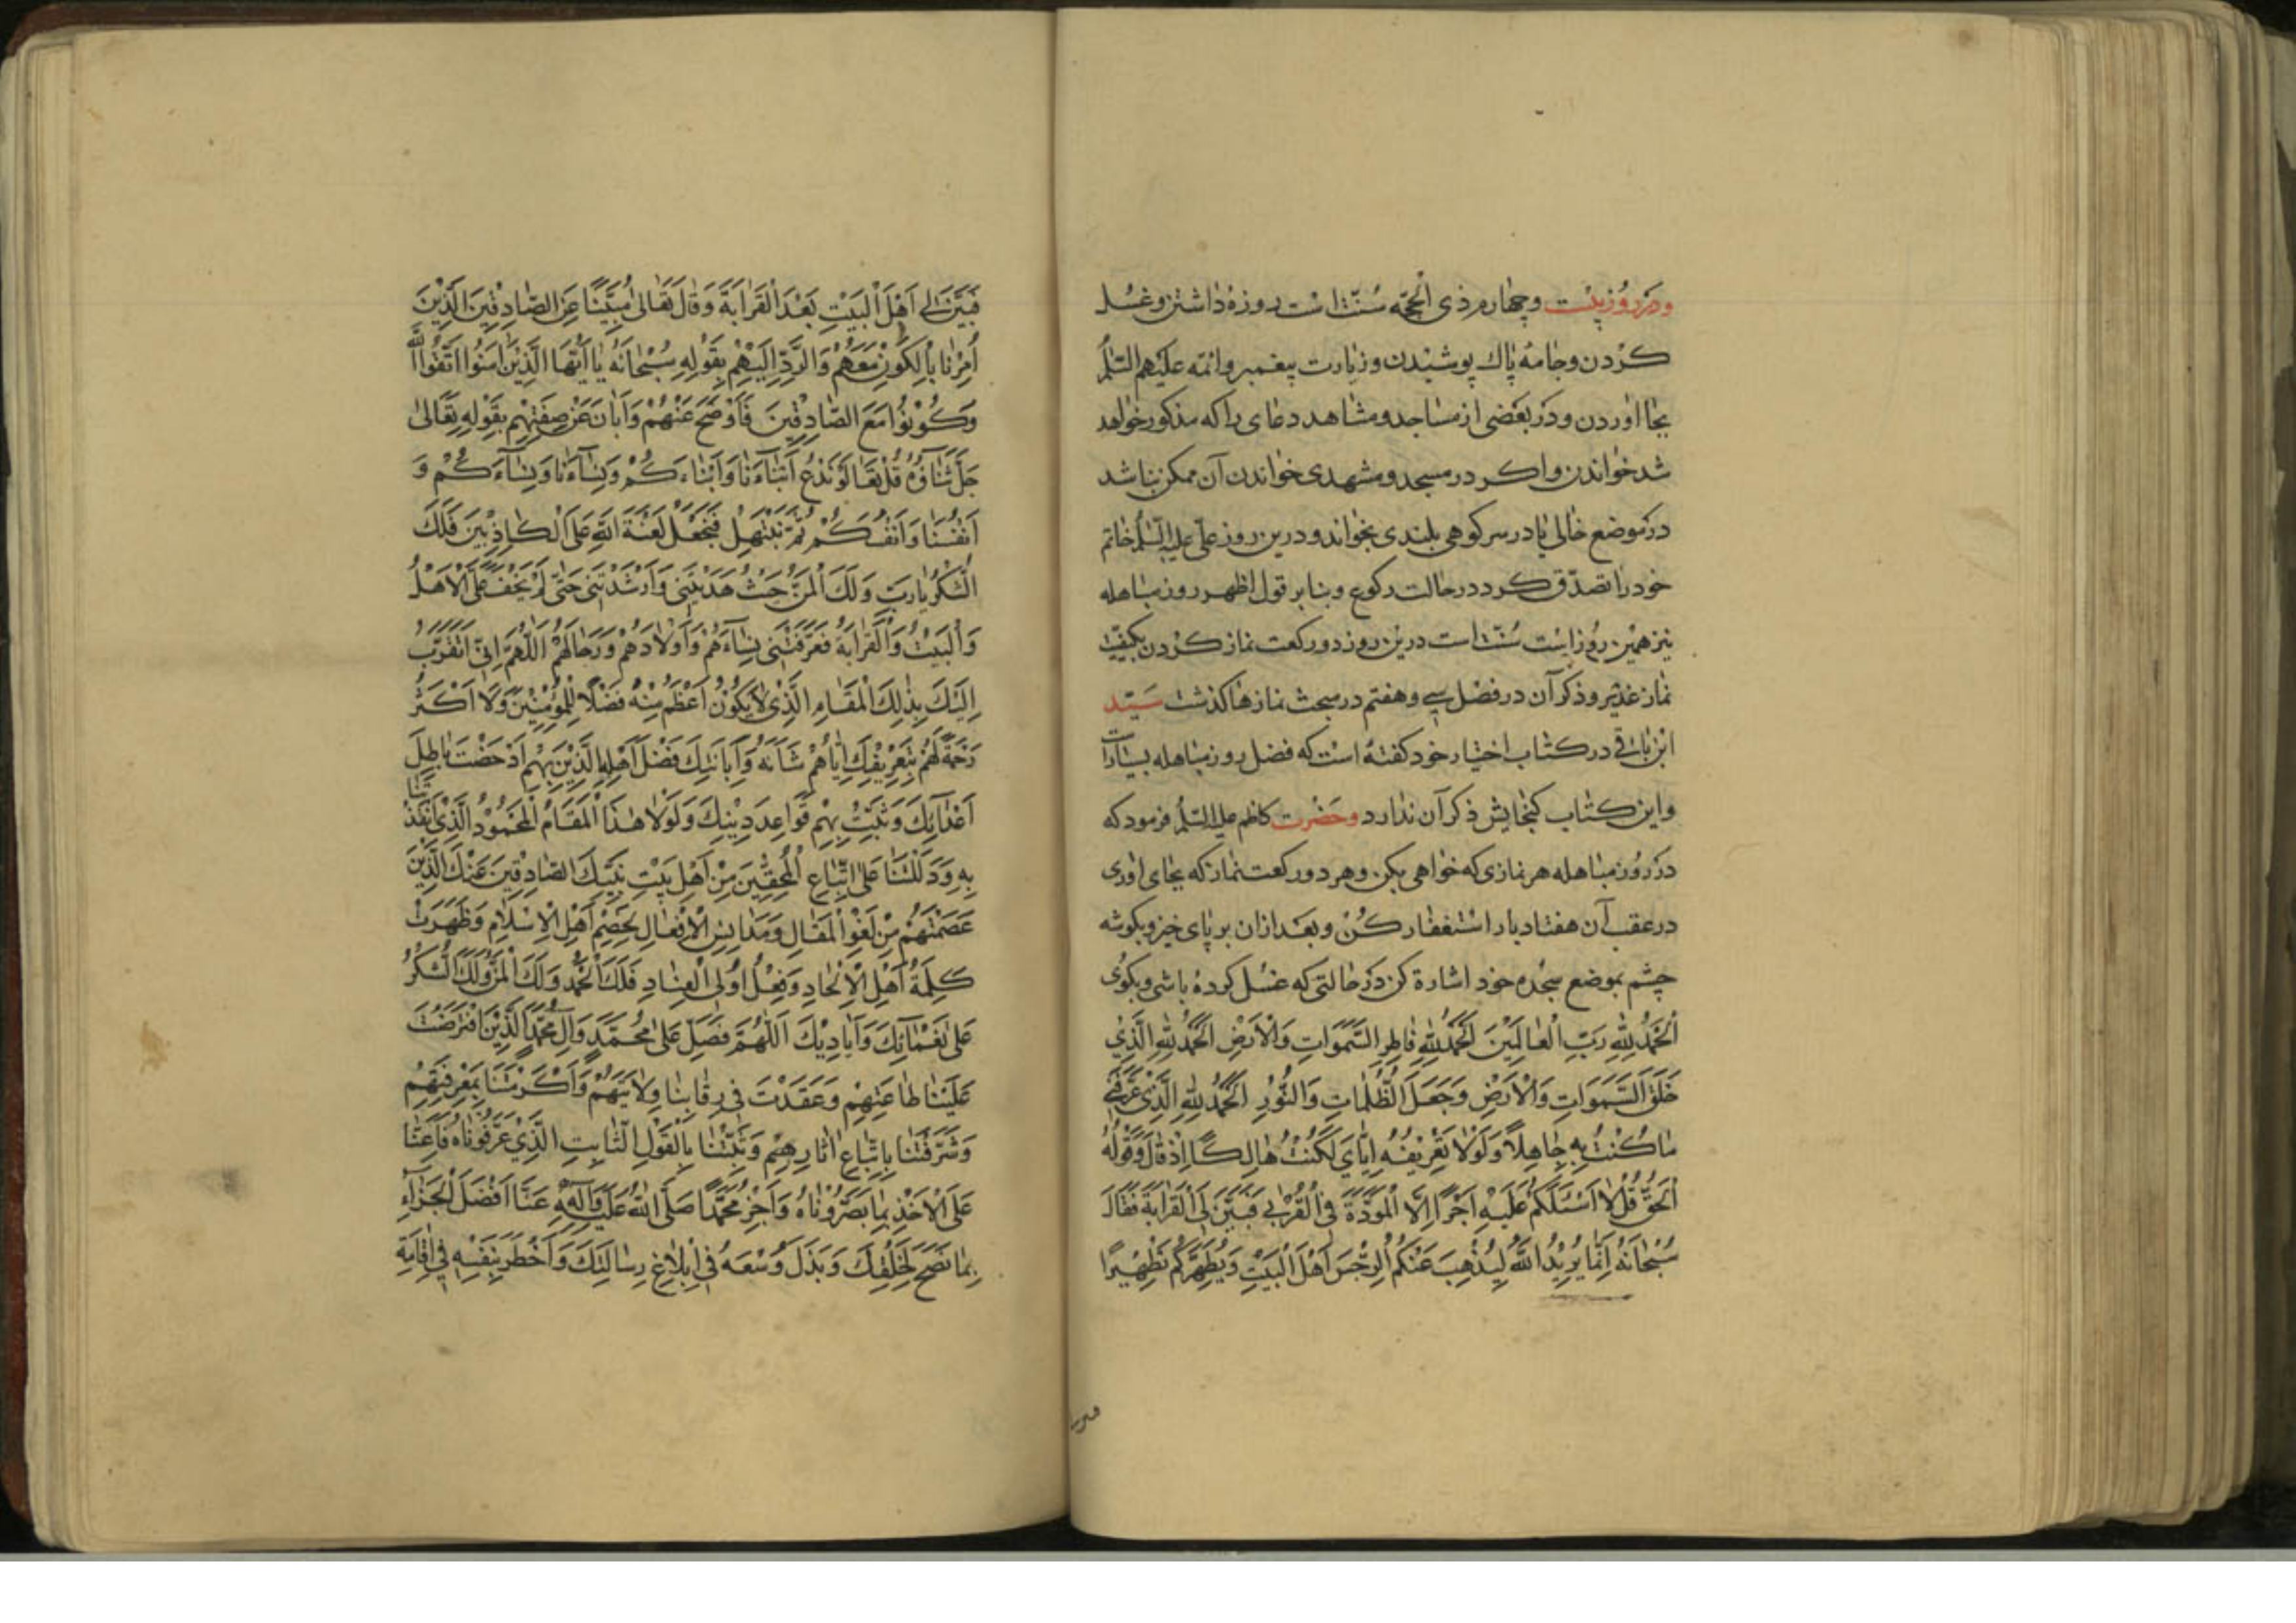 ودر روز بیست و چهارم ذی الحجّه سُنّت است روزه داشتن و غسل
کردن و جامهٔ پاک پوشیدن و زیارت پیغمبر و ائمه علیهم السّلم
بجا اوردن و در بعضی از مساجد و مشاهد دعای را که مذکور خواهد
شد خواندن و اکر در مسجد و مشهدی خواندن آن ممکن نباشد
در موضع خالی یا در سر کوهی بلندی بخواند و درین روز علی علیه السّلم خاتم
خود را تصدّق کرد در حالت رکوع و بنا بر قول اظهر روز مباهله
نیز همین روز است سُنّت است درین روز دو رکعت نماز کردن بکیفیّت
نماز غدیر و ذکر آن در فصل سی و هفتم در مبحث نمازها کذشت سَیّد
ابن باقی در کتاب اختیار خود کفته است که فضل روز مباهله بسیار است
و این کتاب کنجایش ذکر آن ندارد و حَضْرت کاظم علیه السّلم فرمود که
در روز مباهله هر نمازی که خواهی بکن و هر دو رکعت نماز که بجای اوری
در عقب آن هفتاد بار استغفار کُن و بعد ازان بر پای خیز و بکوشه
چشم بموضع سجده خود اشارة کن در حالتی که غسل کرده باشی و بکوی
اَلْحَمْدُ لِلّٰهِ رَبِّ الْعالَمِیْنَ اَلْحَمْدُ لِلّٰهِ فاطِرِ السَّمَوٰاتِ وَالْاَرْضِ اَلْحَمْدُ لِلّٰهِ الَّذِي
خَلَقَ السَّمَوَاتِ وَالْاَرْضِ وَجَعَلَ الظُّلُمَاتِ وَالنُّوْرِ اَلْحَمْدُ لِلّٰهِ الَّذِيْ عَرَّفَنِي
مَا كُنْتُ بِهِ جَاهِلاً وَلَوْلا تَعْرِيْفُهُ اِيّٰايَ لَكُنْتُ هٰالِكًا اِذْ قٰالَ وَقَوْلُهُ
اَلْحَقُّ قُلْ لا اَسْئَلُكُمْ عَلَيْهِ اَجْرًا اِلَّا الْمَوَدَّةَ فِي الْقُرْبٰى فَبَيَّنَ لِيَ الْقَرٰابَةَ فَقٰالَ
سُبْحٰانَهُ اِنَّمٰا يُرِيْدُ اللهُ لِيُذْهِبَ عَنْكُمُ الرِّجْسَ اَهْلَ الْبَيْتِ وَيُطَهِّرَكُمْ تَطْهِيْرًا
فَبَيَّنَ لِي اَهْلَ الْبَيْتِ بَعْدَ الْقَرٰابَةَ وَقٰالَ تَعٰالىٰ مُبَيِّنًا عَنِ الصّٰادِقِيْنَ الَّذِيْنَ
اُمِرْنٰا بِالْكَوْنِ مَعَهُمْ وَالرَّدِّ اِلَيْهِمْ بِقَوْلِهِ سُبْحٰانَهُ يٰا اَيُّهَا الَّذِيْنَ اٰمَنُوا اتَّقُوا اللّٰهَ
وَكُوْنُوْا مَعَ الصّٰادِقِيْنَ فَاَوْضَحَ عَنْهُمْ وَاَبٰانَ عَنْ صِفَتِهِمْ بِقَوْلِهِ تَعٰالىٰ
جَلَّ ثَنٰاؤُهُ قُلْ تَعٰالَوْ نَدْعُ اَبْنٰاءَنٰا وَاَبْنٰاءَكُمْ وَنِسٰاءَنٰا وَنِسٰاءَكُمْ وَ
اَنْفُسَنٰا وَاَنْفُسَكُمْ ثُمَّ نَبْتَهِلْ فَنَجْعَلْ لَعْنَةَ اللهِ عَلَى الْكٰاذِبِيْنَ فَلَكَ
الشُّكْرُ يٰا رَبِّ وَلَكَ الْمَنُّ حَيْثُ هَدَيْتَنِي وَاَرْشَدْتَنِي حَتّٰى لَمْ يَخْفَ عَلَيَّ الْاَهْلُ
وَالْبَيْتُ وَالْقَرٰابَةُ فَعَرَّفْتَنِي نِسٰاءَهُمْ وَاَوْلٰادَهُمْ وَرِجٰالَهُمْ اَللّٰهُمَّ اِنِّي اَتَقَرَّبُ
اِلَيْكَ بِذٰلِكَ الْمَقٰامِ الَّذِيْ لٰا يَكُوْنُ اَعْظَمَ مِنْهُ فَضْلًا لِلْمُؤْمِنِيْنَ وَلَا اَكْثَرَ
رَحْمَةً لَهُمْ بِتَعْرِيْفِكَ اِيّٰاهُمْ شَأْنَهُ وَاِبٰانَتِكَ فَضْلَ اَهْلِهِ الَّذِيْنَ بِهِمْ اَدْحَضْتَ بٰاطِلَ
اَعْدٰائِكَ وَثَبَّتَّ بِهِمْ قَوٰاعِدَ دِيْنِكَ وَلَوْلٰا هٰذَا الْمَقٰامُ الْمَحْمُوْدُ الَّذِيْ اَنْقَذْتَنٰا
بِهِ وَدَلَلْتَنٰا عَلَى اتِّبٰاعِ الْمُحِقِّيْنَ مِنْ اَهْلِ بَيْتِ نَبِيِّكَ الصّٰادِقِيْنَ عَنْكَ الَّذِيْنَ
عَصَمْتَهُمْ مِنْ لَغْوِ الْمَقٰالِ وَمَدٰانِسِ الْاَفْعٰالِ لَخُصِمَ اَهْلُ الْاِسْلٰامِ وَظَهَرَتْ
كَلِمَةُ اَهْلِ الْاِلْحٰادِ وَفِعْلُ اُولِي الْعِنٰادِ فَلَكَ الْحَمْدُ وَلَكَ الْمَنُّ وَلَكَ الشُّكْرُ
عَلىٰ نَعْمٰائِكَ وَاَيٰادِيْكَ اَللّٰهُمَّ فَصَلِّ عَلىٰ مُحَمَّدٍ وَآلِ مُحَمَّدٍ الَّذِيْنَ افْتَرَضْتَ
عَلَيْنٰا طٰاعَتَهُمْ وَعَقَدْتَ فِي رِقٰابِنٰا وِلٰايَتَهُمْ وَاَكْرَمْتَنٰا بِمَعْرِفَتِهِمْ
وَشَرَّفْتَنٰا بِاتِّبٰاعِ اٰثٰارِهِمْ وَثَبَّتْنٰا بِالْقَوْلِ الثّٰابِتِ الَّذِيْ عَرَّفُوْنٰاهُ فَاَعِنّٰا
عَلَى الْاَخْذِ بِمٰا بَصَّرُوْنٰاهُ وَاَجْزِ مُحَمَّدًا صَلَّى اللهُ عَلَيْهِ وَآلِهِ عَنَّا اَفْضَلَ الْجَزٰاءِ
بِمٰا نَصَحَ لِخَلْقِكَ وَبَذَلَ وُسْعَهُ فِي اِبْلٰاغِ رِسٰالَتِكَ وَاَخْطَرَ بِنَفْسِهِ فِي اِقٰامَةِ